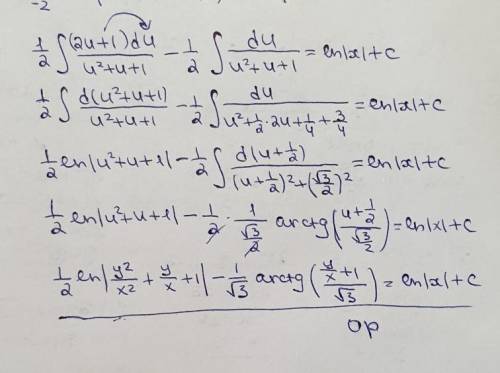 -2
1/2 ∫ (2u+1)du/(u²+u+1) - 1/2 ∫ du/(u²+u+1) = ln|x|+c
1/2 ∫ d(u²+u+1)/(u²+u+1) - 1/2 ∫ du/(u²+1/2·2u+1/4+3/4) = ln|x|+c
1/2 ln|u²+u+1| - 1/2 ∫ d(u+1/2)/((u+1/2)²+(√3/2)²) = ln|x|+c
1/2 ln|u²+u+1| - 1/2 · 1/(√3/2) arctg((u+1/2)/(√3/2)) = ln|x|+c
1/2 ln|y²/x² + y/x + 1| - 1/√3 arctg((y/x+1)/√3) = ln|x|+c
op